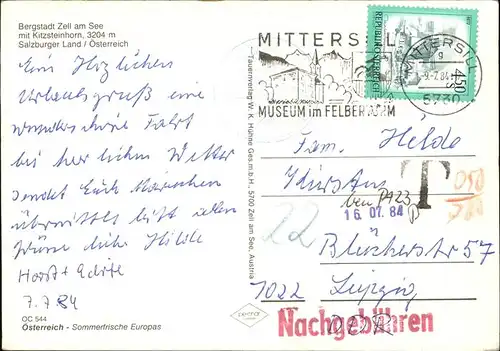 Bergstadt Zell am See
mit Kitzsteinhorn, 3204 m
Salzburger Land / Österreich
Ein Herzlichen
Urlaubsgruß eine
wunderschöne Fahrt
bei herlichen Wetter
sendet Euch
übermittelt bitte allen
Grüße liebe Hilde
Horst +
7.7.84
OC 544
Österreich - Sommerfrische Europas
Tauernverlag W. K. Hühne Ges.m.b.H., 5700 Zell am See, Austria
MITTERSILL
MUSEUM im FELBERTURM
REPUBLIK ÖSTERREICH
S 4.50
MITTERSILL
g
-9.-7.84
5730
Fam. Hilde
T
050
16. 07. 84
22
Blücherstr 57
7022 Leipzig
DDR
Nachgebühren